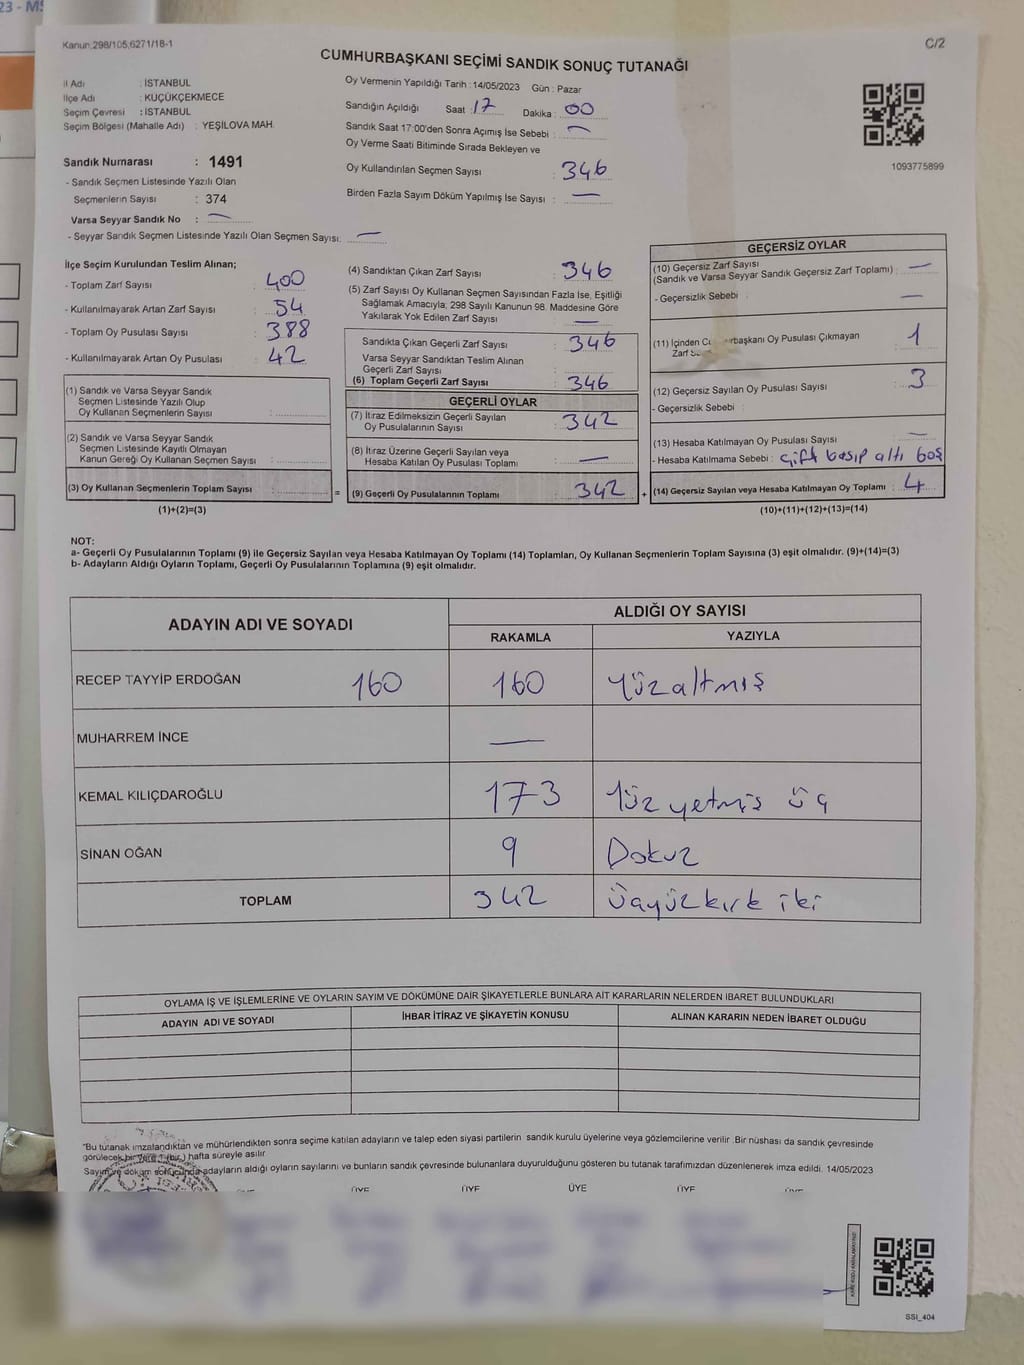 23 - MS
Kanun:298/105,6271/18-1
C/2
CUMHURBAŞKANI SEÇİMİ SANDIK SONUÇ TUTANAĞI
İl Adı : İSTANBUL
İlçe Adı : KÜÇÜKÇEKMECE
Seçim Çevresi : İSTANBUL
Seçim Bölgesi (Mahalle Adı) : YEŞİLOVA MAH.
Sandık Numarası : 1491
- Sandık Seçmen Listesinde Yazılı Olan
Seçmenlerin Sayısı : 374
Varsa Seyyar Sandık No : —
- Seyyar Sandık Seçmen Listesinde Yazılı Olan Seçmen Sayısı: —
Oy Vermenin Yapıldığı Tarih : 14/05/2023 Gün : Pazar
Sandığın Açıldığı Saat : 17 Dakika : 00
Sandık Saat 17:00'den Sonra Açımış İse Sebebi : —
Oy Verme Saati Bitiminde Sırada Bekleyen ve
Oy Kullandırılan Seçmen Sayısı : 346
Birden Fazla Sayım Döküm Yapılmış İse Sayısı : —
1093775899
İlçe Seçim Kurulundan Teslim Alınan;
- Toplam Zarf Sayısı : 400
- Kullanılmayarak Artan Zarf Sayısı : 54
- Toplam Oy Pusulası Sayısı : 388
- Kullanılmayarak Artan Oy Pusulası : 42
(1) Sandık ve Varsa Seyyar Sandık
Seçmen Listesinde Yazılı Olup
Oy Kullanan Seçmenlerin Sayısı :
(2) Sandık ve Varsa Seyyar Sandık
Seçmen Listesinde Kayıtlı Olmayan
Kanun Gereği Oy Kullanan Seçmen Sayısı :
(3) Oy Kullanan Seçmenlerin Toplam Sayısı :
(1)+(2)=(3)
=
(4) Sandıktan Çıkan Zarf Sayısı : 346
(5) Zarf Sayısı Oy Kullanan Seçmen Sayısından Fazla İse, Eşitliği
Sağlamak Amacıyla; 298 Sayılı Kanunun 98. Maddesine Göre
Yakılarak Yok Edilen Zarf Sayısı : —
Sandıkta Çıkan Geçerli Zarf Sayısı : 346
Varsa Seyyar Sandıktan Teslim Alınan
Geçerli Zarf Sayısı :
(6) Toplam Geçerli Zarf Sayısı : 346
GEÇERLİ OYLAR
(7) İtiraz Edilmeksizin Geçerli Sayılan
Oy Pusulalarının Sayısı : 342
(8) İtiraz Üzerine Geçerli Sayılan veya
Hesaba Katılan Oy Pusulası Toplamı : —
(9) Geçerli Oy Pusulalarının Toplamı : 342
+
GEÇERSİZ OYLAR
(10) Geçersiz Zarf Sayısı
(Sandık ve Varsa Seyyar Sandık Geçersiz Zarf Toplamı) : —
- Geçersizlik Sebebi : —
(11) İçinden rbaşkanı Oy Pusulası Çıkmayan
Zarf : 1
(12) Geçersiz Sayılan Oy Pusulası Sayısı : 3
- Geçersizlik Sebebi :
(13) Hesaba Katılmayan Oy Pusulası Sayısı : —
- Hesaba Katılmama Sebebi : çift basıp altı boş
(14) Geçersiz Sayılan veya Hesaba Katılmayan Oy Toplamı : 4
(10)+(11)+(12)+(13)=(14)
NOT:
a- Geçerli Oy Pusulalarının Toplamı (9) ile Geçersiz Sayılan veya Hesaba Katılmayan Oy Toplamı (14) Toplamları, Oy Kullanan Seçmenlerin Toplam Sayısına (3) eşit olmalıdır. (9)+(14)=(3)
b- Adayların Aldığı Oyların Toplamı, Geçerli Oy Pusulalarının Toplamına (9) eşit olmalıdır.
ADAYIN ADI VE SOYADI
ALDIĞI OY SAYISI
RAKAMLA YAZIYLA
RECEP TAYYİP ERDOĞAN 160 160 Yüzaltmış
MUHARREM İNCE —
KEMAL KILIÇDAROĞLU 173 Yüz yetmiş üç
SİNAN OĞAN 9 Dokuz
TOPLAM 342 Üçyüzkırk iki
OYLAMA İŞ VE İŞLEMLERİNE VE OYLARIN SAYIM VE DÖKÜMÜNE DAİR ŞİKAYETLERLE BUNLARA AİT KARARLARIN NELERDEN İBARET BULUNDUKLARI
ADAYIN ADI VE SOYADI İHBAR İTİRAZ VE ŞİKAYETİN KONUSU ALINAN KARARIN NEDEN İBARET OLDUĞU
"Bu tutanak imzalandıktan ve mühürlendikten sonra seçime katılan adayların ve talep eden siyasi partilerin sandık kurulu üyelerine veya gözlemcilerine verilir .Bir nüshası da sandık çevresinde
görülecek bir yere 1 (bir) hafta süreyle asılır.
Sayım ve döküm sonucunda adayların aldığı oyların sayılarını ve bunların sandık çevresinde bulunanlara duyurulduğunu gösteren bu tutanak tarafımızdan düzenlenerek imza edildi. 14/05/2023
ÜYE ÜYE ÜYE ÜYE ÜYE ÜYE
SSİ_404